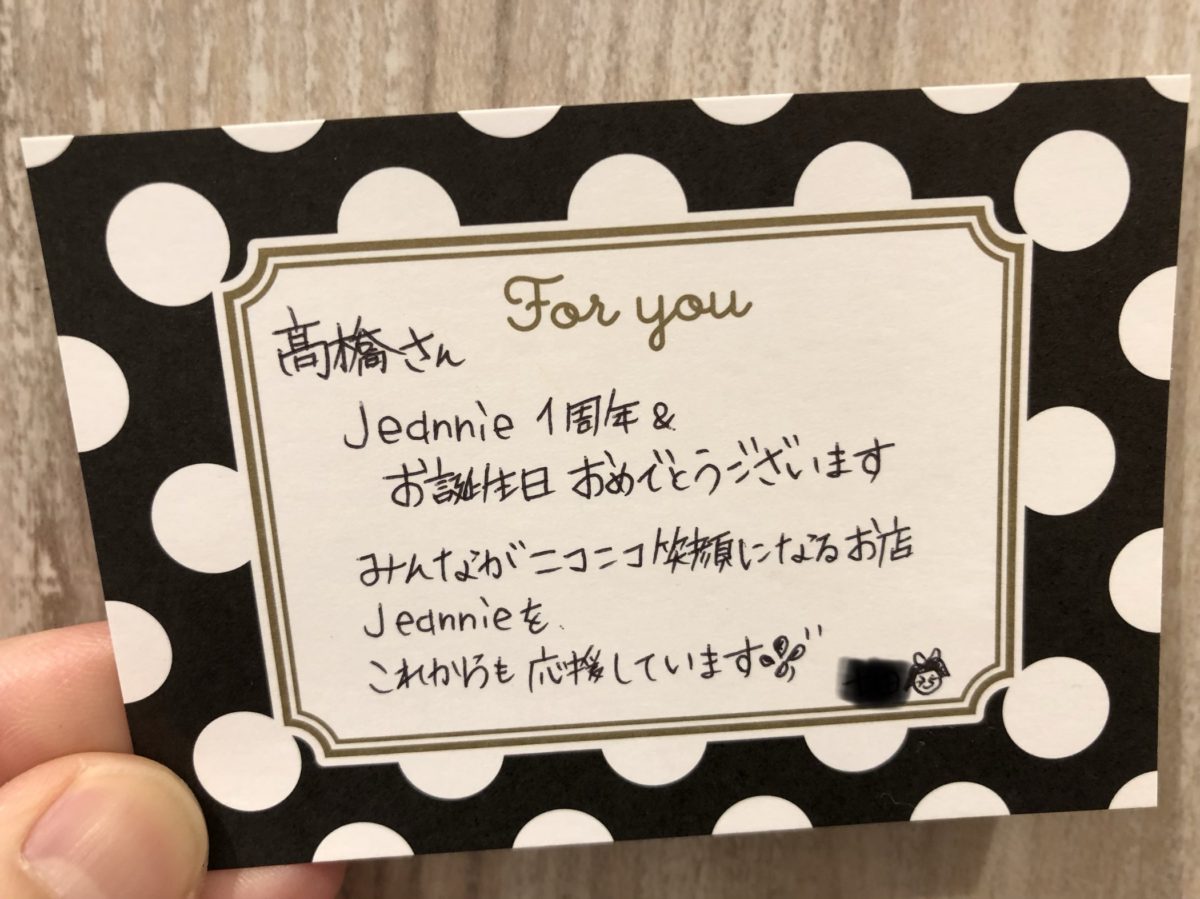 For you
髙橋さん
Jeannie 1周年&
お誕生日 おめでとうございます
みんながニコニコ笑顔になるお店
Jeannieを
これからも応援しています